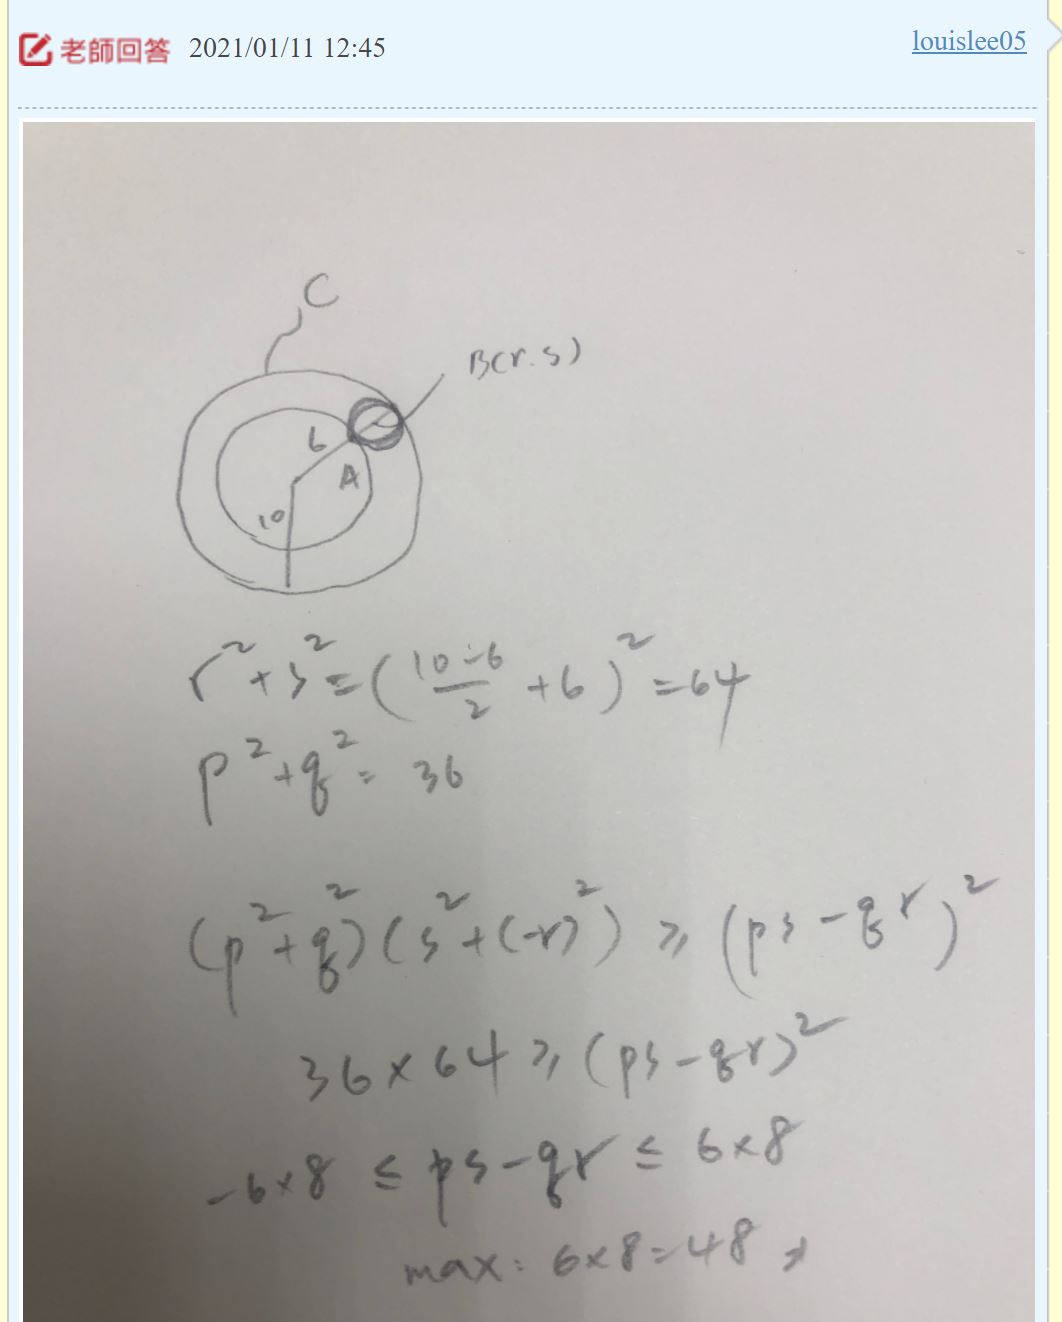 老師回答 2021/01/11 12:45 louislee05
C
B(r.s)
6
A
10
r²+s²=(\frac{10-6}{2}+6)²=64
p²+q²=36
(p²+q²)(s²+(-r)²)≥(ps-qr)²
36×64≥(ps-qr)²
-6×8≤ps-qr≤6×8
max:6×8=48